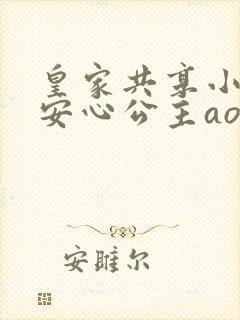 皇家共享小
安心公主ao
安雎尔